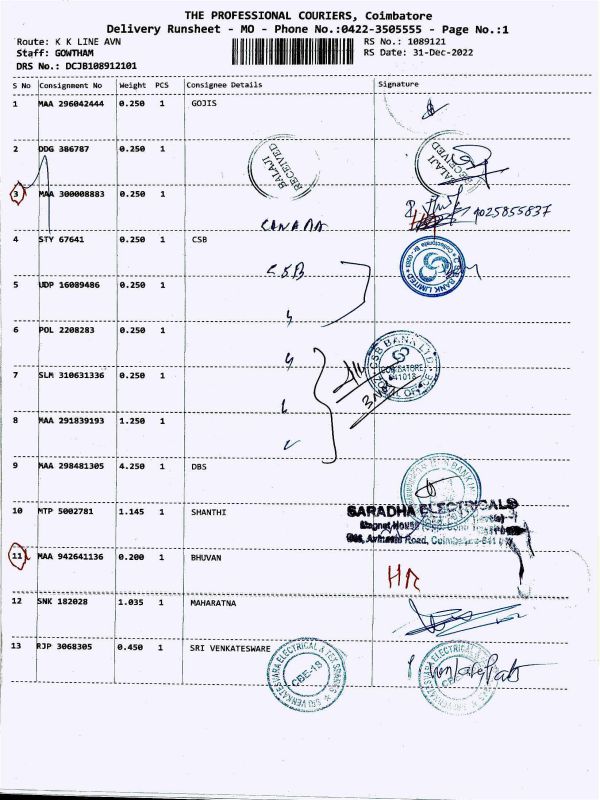 THE PROFESSIONAL COURIERS, Coimbatore
Delivery Runsheet - MO - Phone No.:0422-3505555 - Page No.:1
Route: K K LINE AVN
RS No.: 1089121
Staff: GOWTHAM
RS Date: 31-Dec-2022
DRS No.: DCJB108912101
S No Consignment No Weight PCS Consignee Details Signature
1 MAA 296042444 0.250 1 GOJIS
2 DDG 386787 0.250 1
BALAJI RECEIVED
BALAJI RECEIVED
3 MAA 300008883 0.250 1
CANARA
HR
4 STY 67641 0.250 1 CSB
CSB BANK LIMITED
CSB
5 UDP 16089486 0.250 1
6 POL 2208283 0.250 1
CSB BANK LTD.
COIMBATORE
641018
7 SLM 310631336 0.250 1
8 MAA 291839193 1.250 1
9 MAA 298481305 4.250 1 DBS
10 MTP 5002781 1.145 1 SHANTHI
SARADHA ELECTRICALS
Avinashi Road, Coimbatore-641
11 MAA 942641136 0.200 1 BHUVAN
HR
12 SNK 182028 1.035 1 MAHARATNA
13 RJP 3068305 0.450 1 SRI VENKATESWARE
SRI VENKATESWARA ELECTRICAL & TEX SPARES
CBE-18